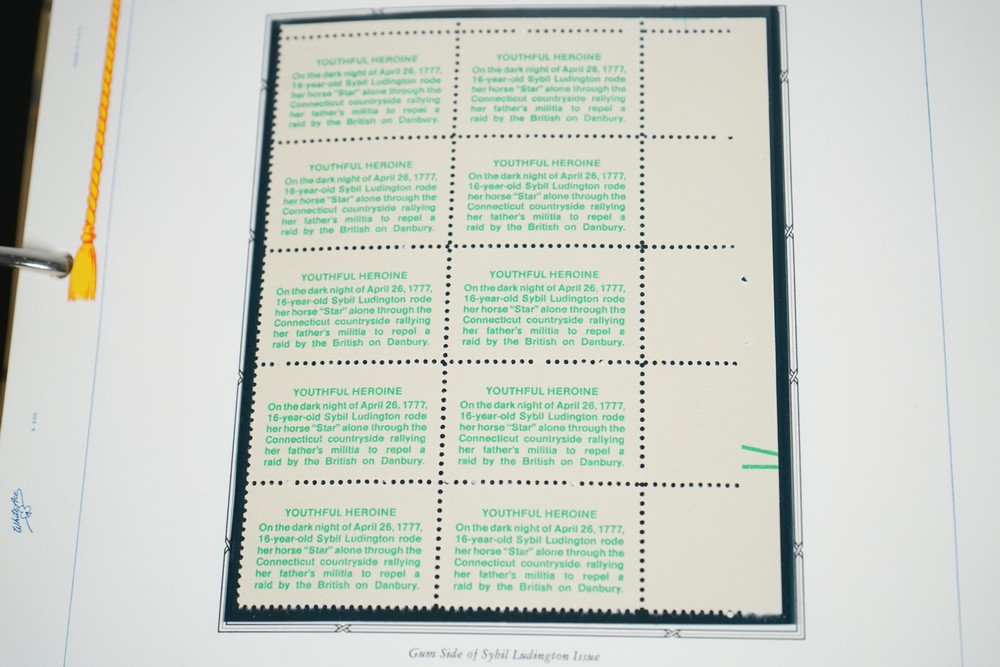 YOUTHFUL HEROINE
On the dark night of April 26, 1777,
16-year-old Sybil Ludington rode
her horse "Star" alone through the
Connecticut countryside rallying
her father's militia to repel a
raid by the British on Danbury.
YOUTHFUL HEROINE
On the dark night of April 26, 1777,
16-year-old Sybil Ludington rode
her horse "Star" alone through the
Connecticut countryside rallying
her father's militia to repel a
raid by the British on Danbury.
YOUTHFUL HEROINE
On the dark night of April 26, 1777,
16-year-old Sybil Ludington rode
her horse "Star" alone through the
Connecticut countryside rallying
her father's militia to repel a
raid by the British on Danbury.
YOUTHFUL HEROINE
On the dark night of April 26, 1777,
16-year-old Sybil Ludington rode
her horse "Star" alone through the
Connecticut countryside rallying
her father's militia to repel a
raid by the British on Danbury.
YOUTHFUL HEROINE
On the dark night of April 26, 1777,
16-year-old Sybil Ludington rode
her horse "Star" alone through the
Connecticut countryside rallying
her father's militia to repel a
raid by the British on Danbury.
YOUTHFUL HEROINE
On the dark night of April 26, 1777,
16-year-old Sybil Ludington rode
her horse "Star" alone through the
Connecticut countryside rallying
her father's militia to repel a
raid by the British on Danbury.
YOUTHFUL HEROINE
On the dark night of April 26, 1777,
16-year-old Sybil Ludington rode
her horse "Star" alone through the
Connecticut countryside rallying
her father's militia to repel a
raid by the British on Danbury.
YOUTHFUL HEROINE
On the dark night of April 26, 1777,
16-year-old Sybil Ludington rode
her horse "Star" alone through the
Connecticut countryside rallying
her father's militia to repel a
raid by the British on Danbury.
YOUTHFUL HEROINE
On the dark night of April 26, 1777,
16-year-old Sybil Ludington rode
her horse "Star" alone through the
Connecticut countryside rallying
her father's militia to repel a
raid by the British on Danbury.
YOUTHFUL HEROINE
On the dark night of April 26, 1777,
16-year-old Sybil Ludington rode
her horse "Star" alone through the
Connecticut countryside rallying
her father's militia to repel a
raid by the British on Danbury.
Gum Side of Sybil Ludington Issue